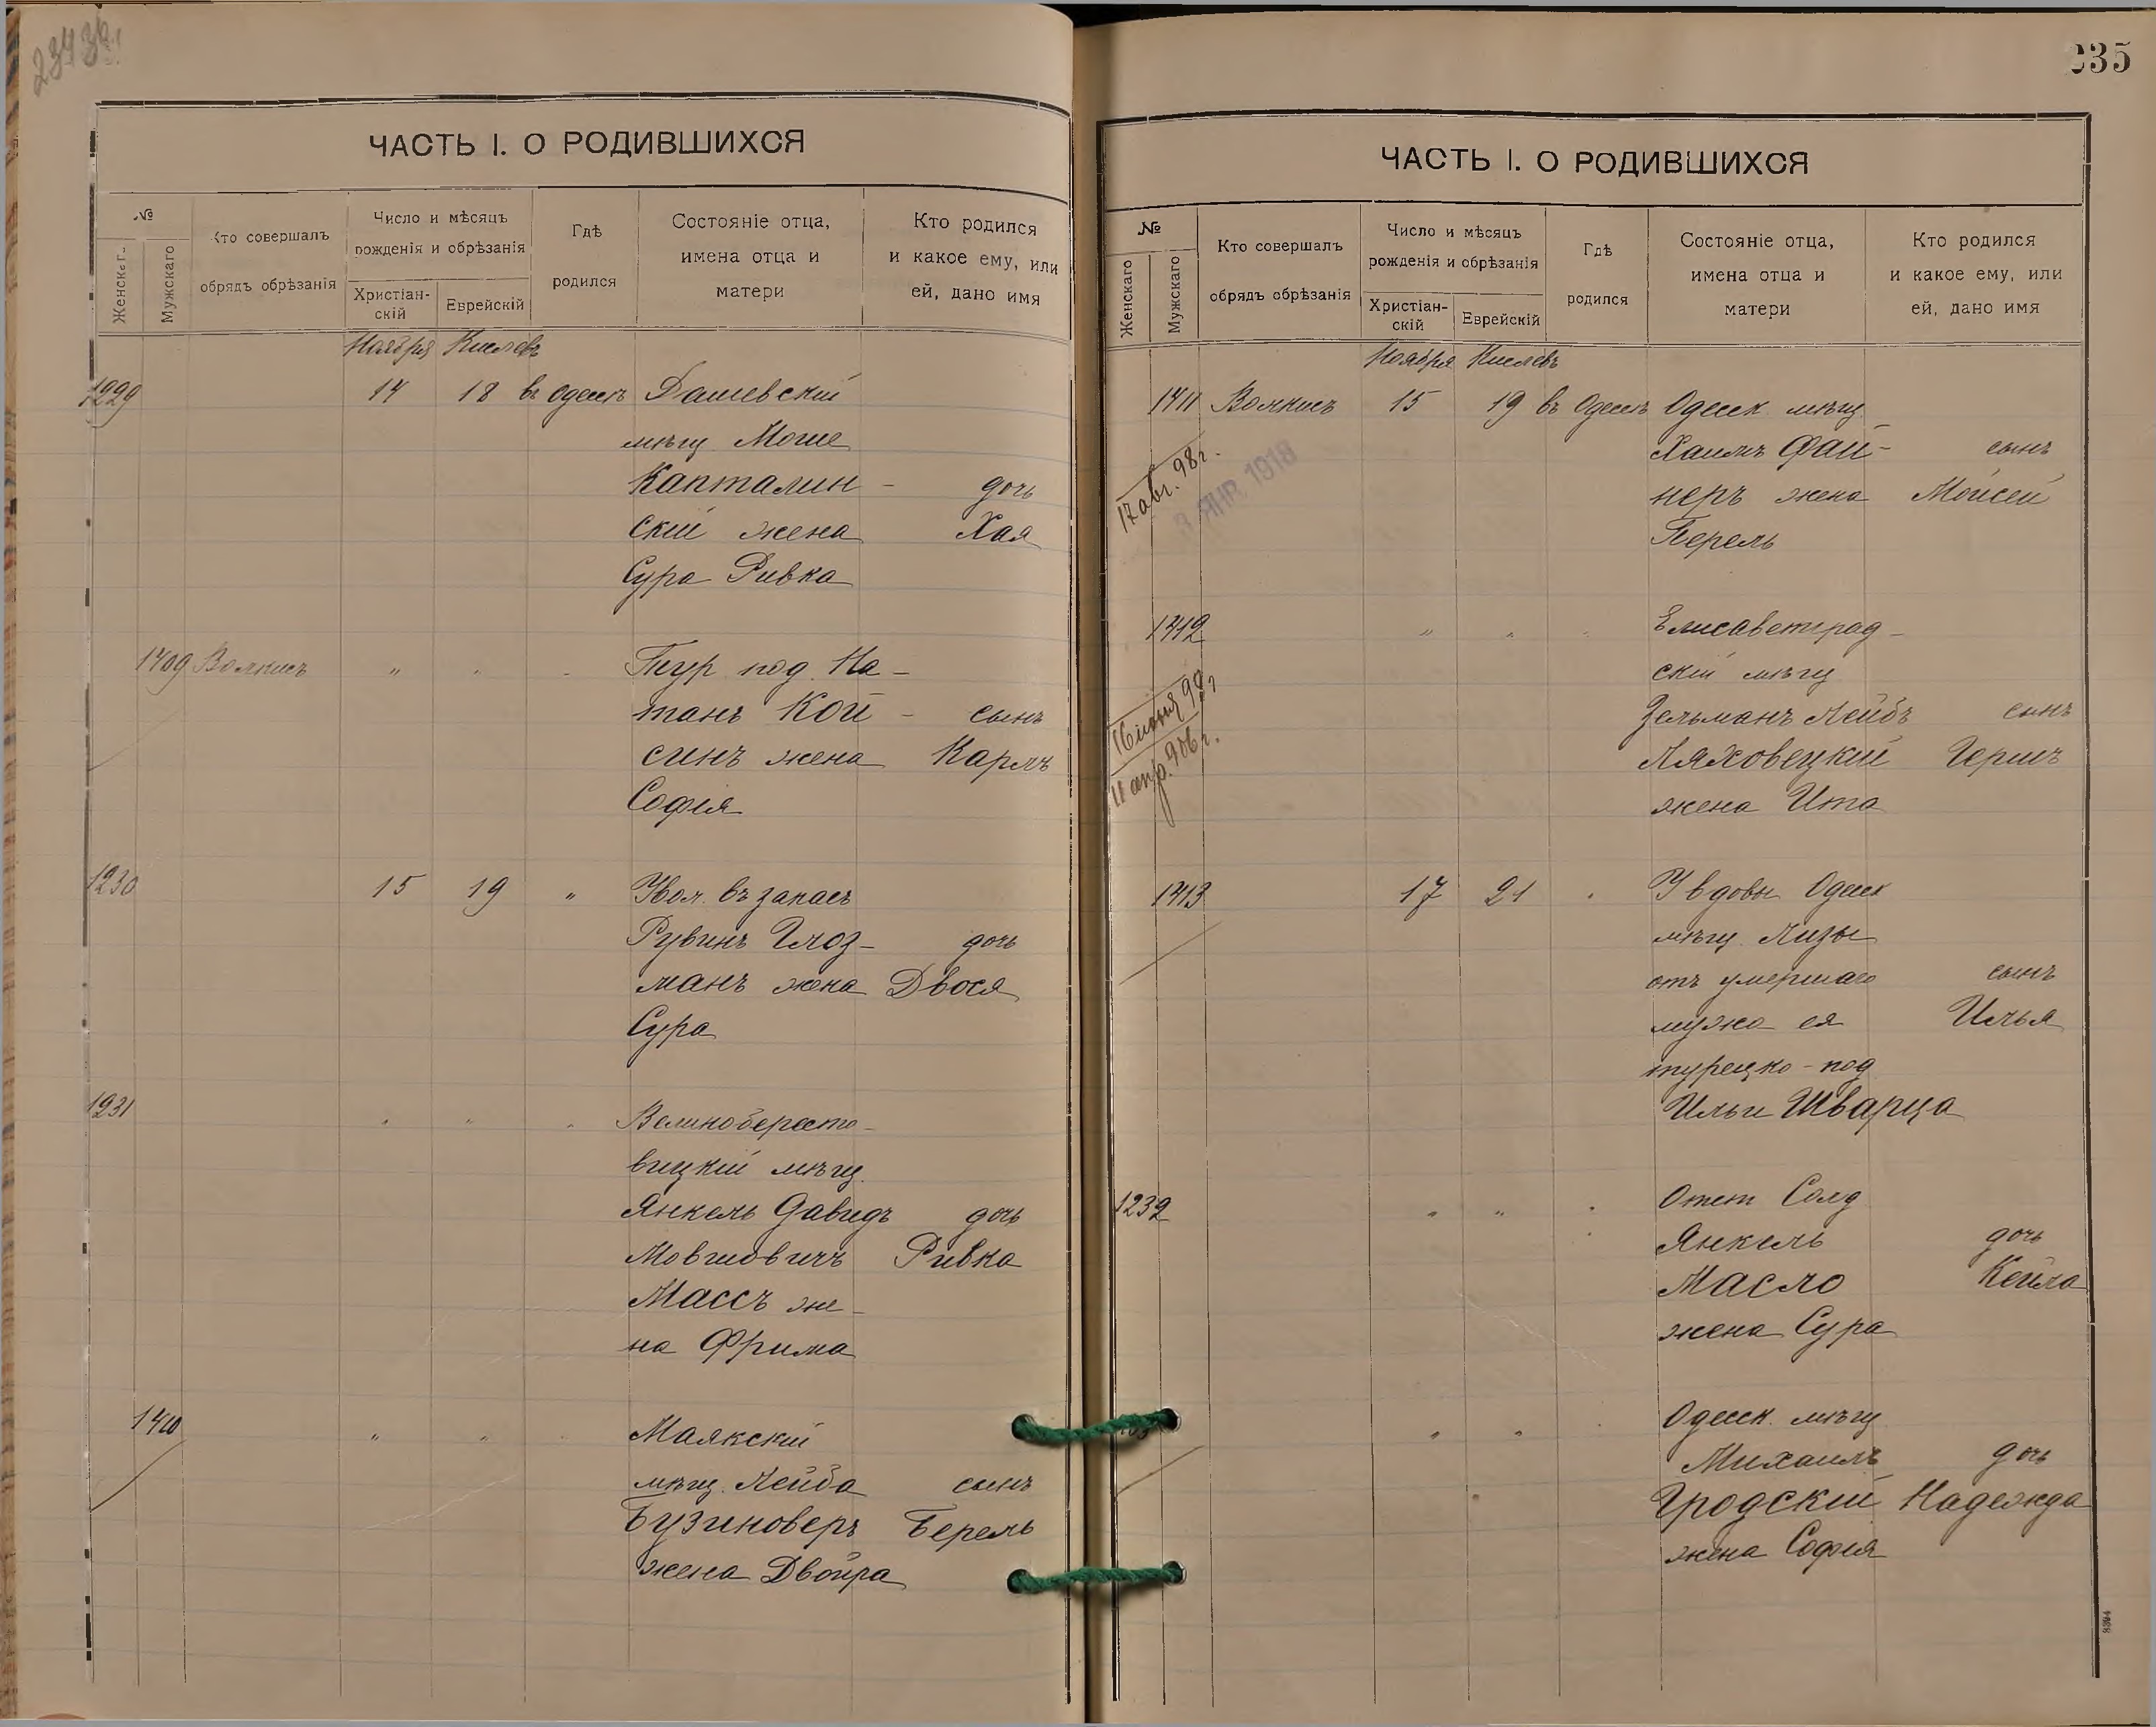 ЧАСТЬ I. О РОДИВШИХСЯ
№
Женскаг.
Мужскаго
Кто совершалъ
обрядъ обрѣзанія
Число и мѣсяцъ
рожденія и обрѣзанія
Христіан-
скій
Еврейскій
Гдѣ
родился
Состояніе отца,
имена отца и
матери
Кто родился
и какое ему, или
ей, дано имя
Ноября Кислевъ
1229 14 18 въ Одессѣ Дашевскій
мѣщ. Моше
Капталин- дочь
скій жена Хая
Сура Ривка
1409 Волкисъ " " Тур под. На-
танъ Кой- сынъ
синъ жена Карлъ
Софія
1230 15 19 " Увол. въ запасъ
Рувинъ Глоз- дочь
манъ жена Двося
Сура
1231 " " " Великобересто-
вицкій мѣщ.
Янкель Давидъ дочь
Мовшовичъ Ривка
Массъ же-
на Фрима
1410 " " Маякскій
мѣщ. Лейба сынъ
Бузиноверъ Берель
жена Двойра
235
ЧАСТЬ I. О РОДИВШИХСЯ
№
Женскаго
Мужскаго
Кто совершалъ
обрядъ обрѣзанія
Число и мѣсяцъ
рожденія и обрѣзанія
Христіан-
скій
Еврейскій
Гдѣ
родился
Состояніе отца,
имена отца и
матери
Кто родился
и какое ему, или
ей, дано имя
Ноября Кислевъ
1411 Волкисъ 15 19 въ Одессѣ Одесск. мѣщ.
Хаимъ Фай- сынъ
неръ жена Мойсей
Перель
17 авг. 98 г.
3 ЯНР. 1918
1412 " " " Елисаветград-
скій мѣщ
Зельманъ Лейбъ сынъ
Ляховецкій Гершъ
жена Ита
16 іюня 98 г
11 апр. 906 г.
1413 17 21 " У вдовы Одесск
мѣщ. Лизы
отъ умершаго сынъ
мужа ея Илья
турецко-под
Ильи Шварца
1232 " " " Отст Солд
Янкель дочь
Масло Кейла
жена Сура
" " Одесск. мѣщ
Михаилъ дочь
Гродскій Надежда
жена Софія
8394